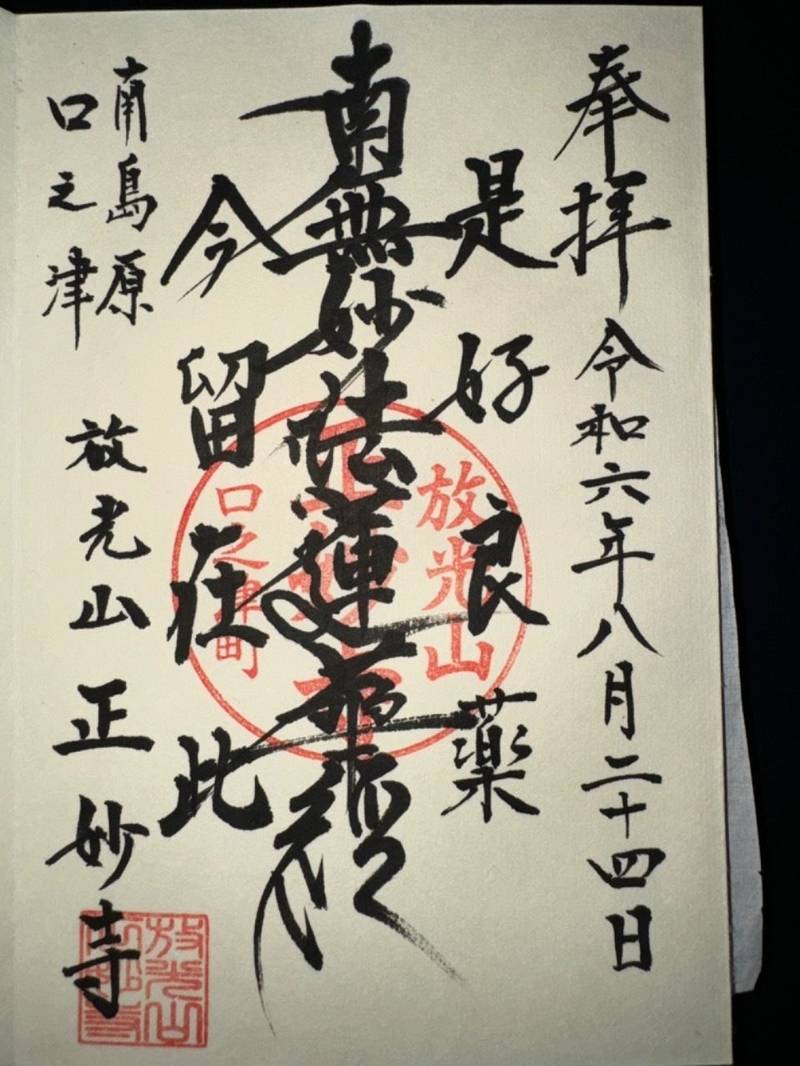 奉拝 令和六年八月二十四日
是好良薬
南無妙法蓮華経
今留在此
南島原
口之津
放光山 正妙寺
放光山
正妙寺
口之津町
放光山
正妙寺